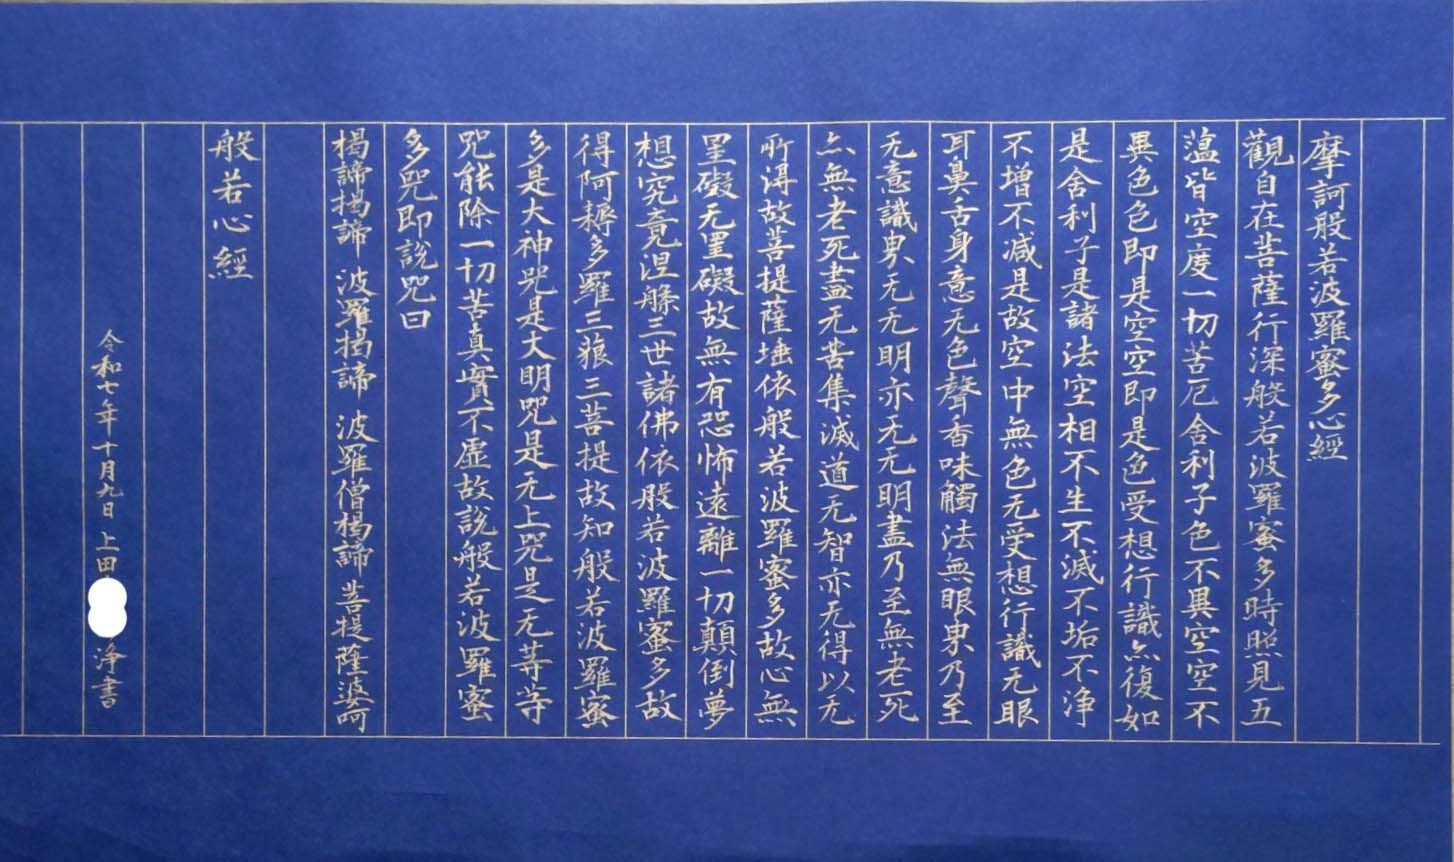 摩訶般若波羅蜜多心經
觀自在菩薩行深般若波羅蜜多時照見五
薀皆空度一切苦厄舍利子色不異空空不
異色色即是空空即是色受想行識亦復如
是舍利子是諸法空相不生不滅不垢不浄
不增不減是故空中無色无受想行識无眼
耳鼻舌身意无色聲香味觸法無眼界乃至
无意識界无无明亦无无明盡乃至無老死
亦無老死盡无苦集滅道无智亦无得以无
所得故菩提薩埵依般若波羅蜜多故心無
罣礙无罣礙故無有恐怖遠離一切顛倒夢
想究竟涅槃三世諸佛依般若波羅蜜多故
得阿耨多羅三藐三菩提故知般若波羅蜜
多是大神咒是大明咒是无上咒是无等等
咒能除一切苦真實不虛故說般若波羅蜜
多咒即說咒曰
揭諦揭諦 波羅揭諦 波羅僧揭諦 菩提薩婆呵
般若心經
令和七年十月九日 上田 浄書